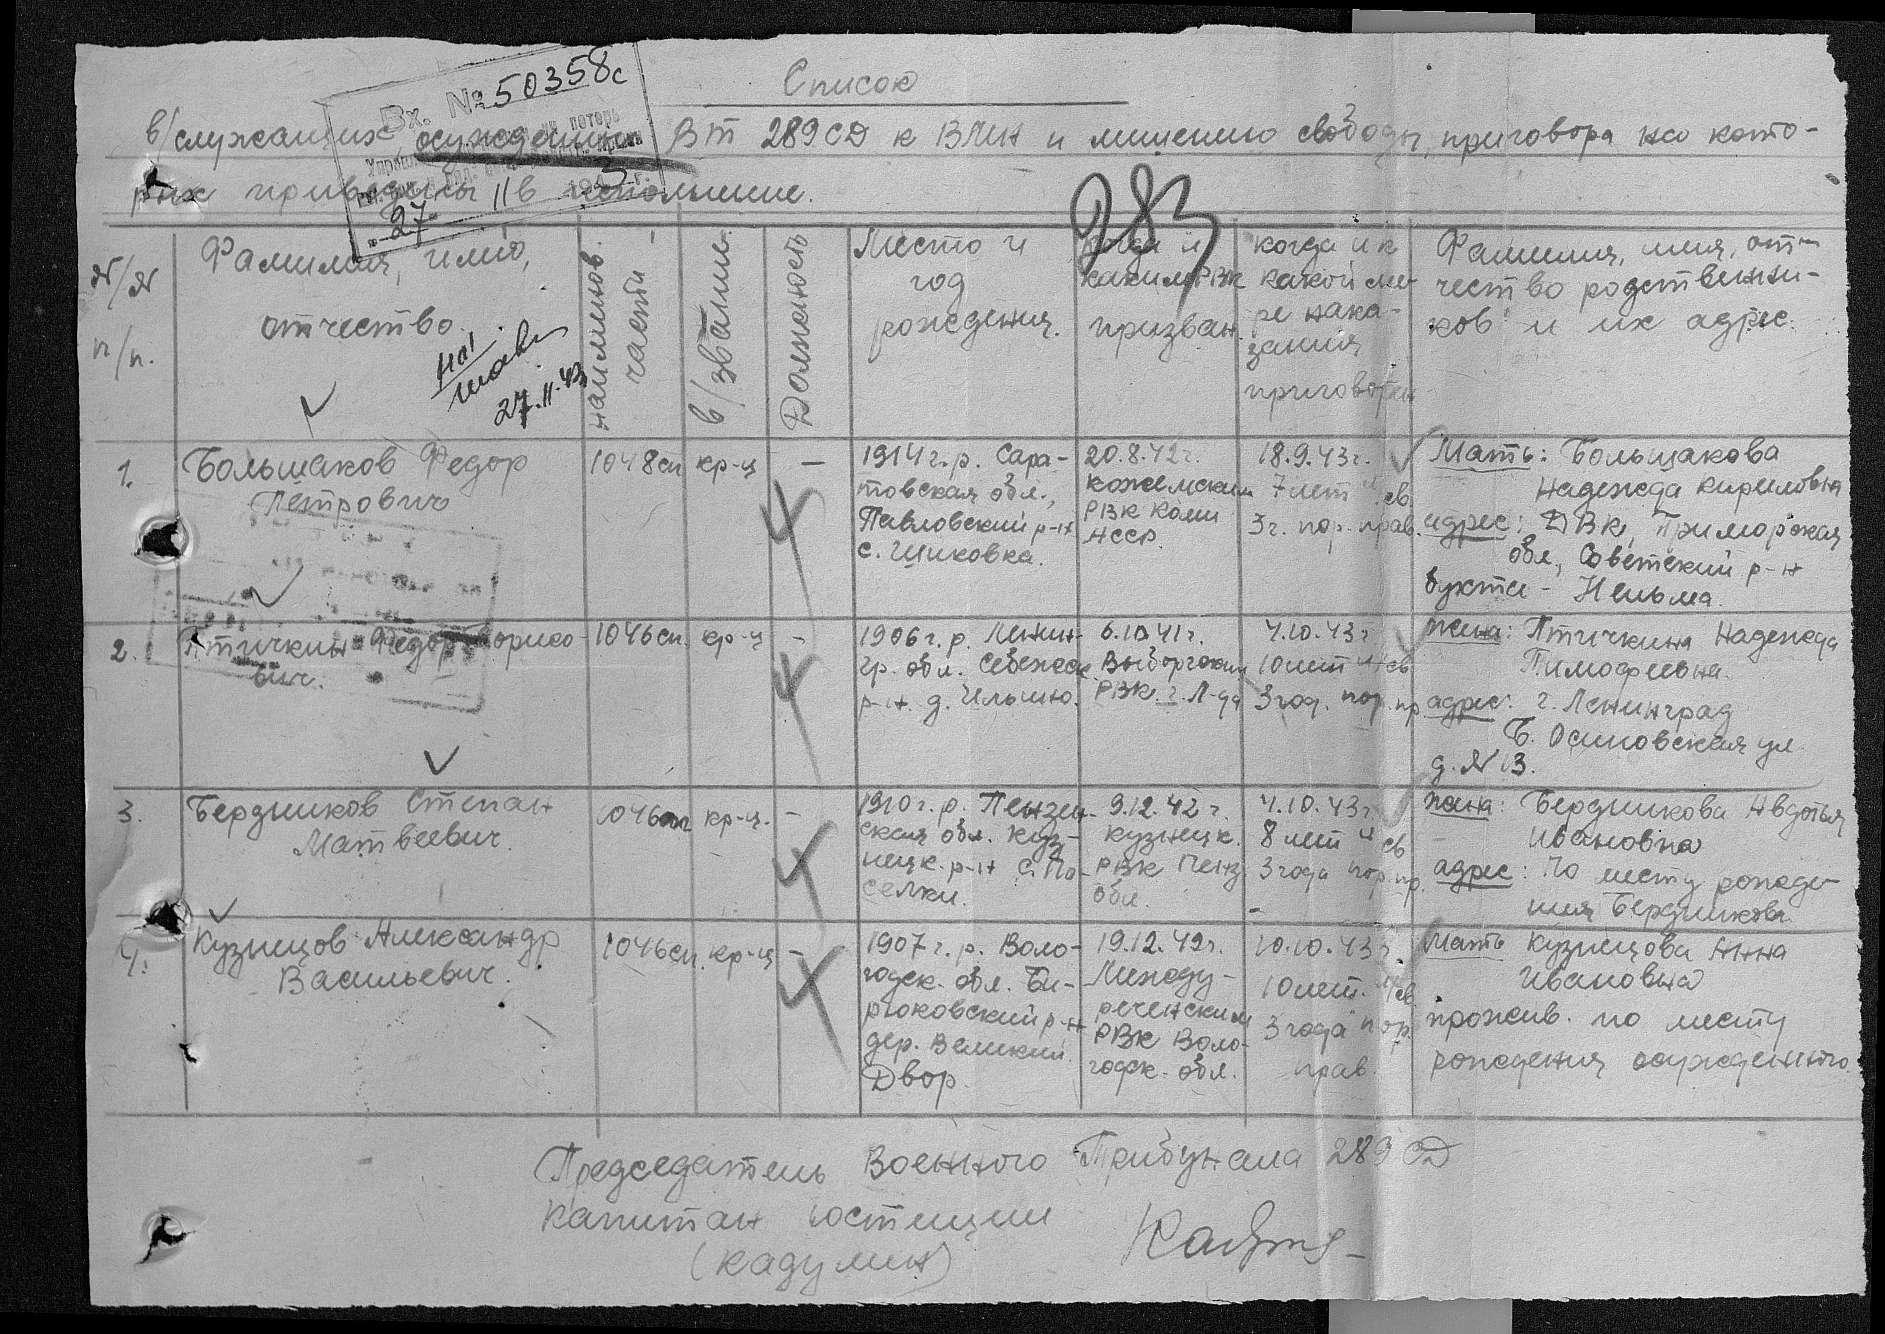 Вх. № 50358с
27 11 1943 г.
Список
в/служащих осужденных ВТ 289 СД к ВМН и лишению свободы, приговора на кото-
рых приведены в исполнение.
283
№/№
п/п.
Фамилия, имя,
отчество
27.11.43
наименов.
части
в/звание
Должность
Место и
год
рождения.
когда и
каким РВК
призван
когда и к
какой ме-
ре нака-
зания
приговорен
Фамилия, имя, от-
чество родственни-
ков и их адрес.
1.
Большаков Федор
Петрович
1048 сп
кр-ц
—
1914 г.р. Сара-
товская обл.,
Павловский р-н
с. Шиковка.
20.8.42 г.
кожемским
РВК Коми
АССР.
18.9.43 г.
7 лет л/св
3 г. пор. прав.
Мать: Большакова
Надежда Кириловна
адрес: ДВК, Приморская
обл., Советский р-н
бухта - Нельма.
2.
Птичкин Федор Борисо-
вич.
1046 сп.
кр-ц
—
1906 г.р. Ленин-
гр. обл. Себежск.
р-н. д. Ильино.
6.10.41 г.
Выборгским
РВК г. Л-да
4.10.43 г
10 лет л/св
3 год. пор. пр.
жена: Птичкина Надежда
Тимофеевна.
адрес: г. Ленинград
Б. Осиновская ул.
д. № 13.
3.
Бердников Степан
Матвеевич.
1046 сп
кр-ц.
—
1910 г.р. Пензен-
ская обл. Куз-
нецк. р-н с. По-
селки.
9.12.42 г.
Кузнецк.
РВК Пенз.
обл.
4.10.43 г.
8 лет л/св
3 года пор. пр.
жена: Бердникова Авдотья
Ивановна
адрес: По месту рожде-
ния Бердникова.
4.
Кузнецов Александр
Васильевич.
1046 сп.
кр-ц
—
1907 г.р. Воло-
годск. обл. Би-
ряковский р-н
дер. Великий
Двор.
19.12.42 г.
Междуре-
реченским
РВК Воло-
годск. обл.
10.10.43 г.
10 лет. л/св
3 года пор.
прав.
Мать Кузнецова Анна
Ивановна
прожив. по месту
рождения осужденного.
Председатель Военного Трибунала 289 СД
капитан юстиции
(Кадулин)